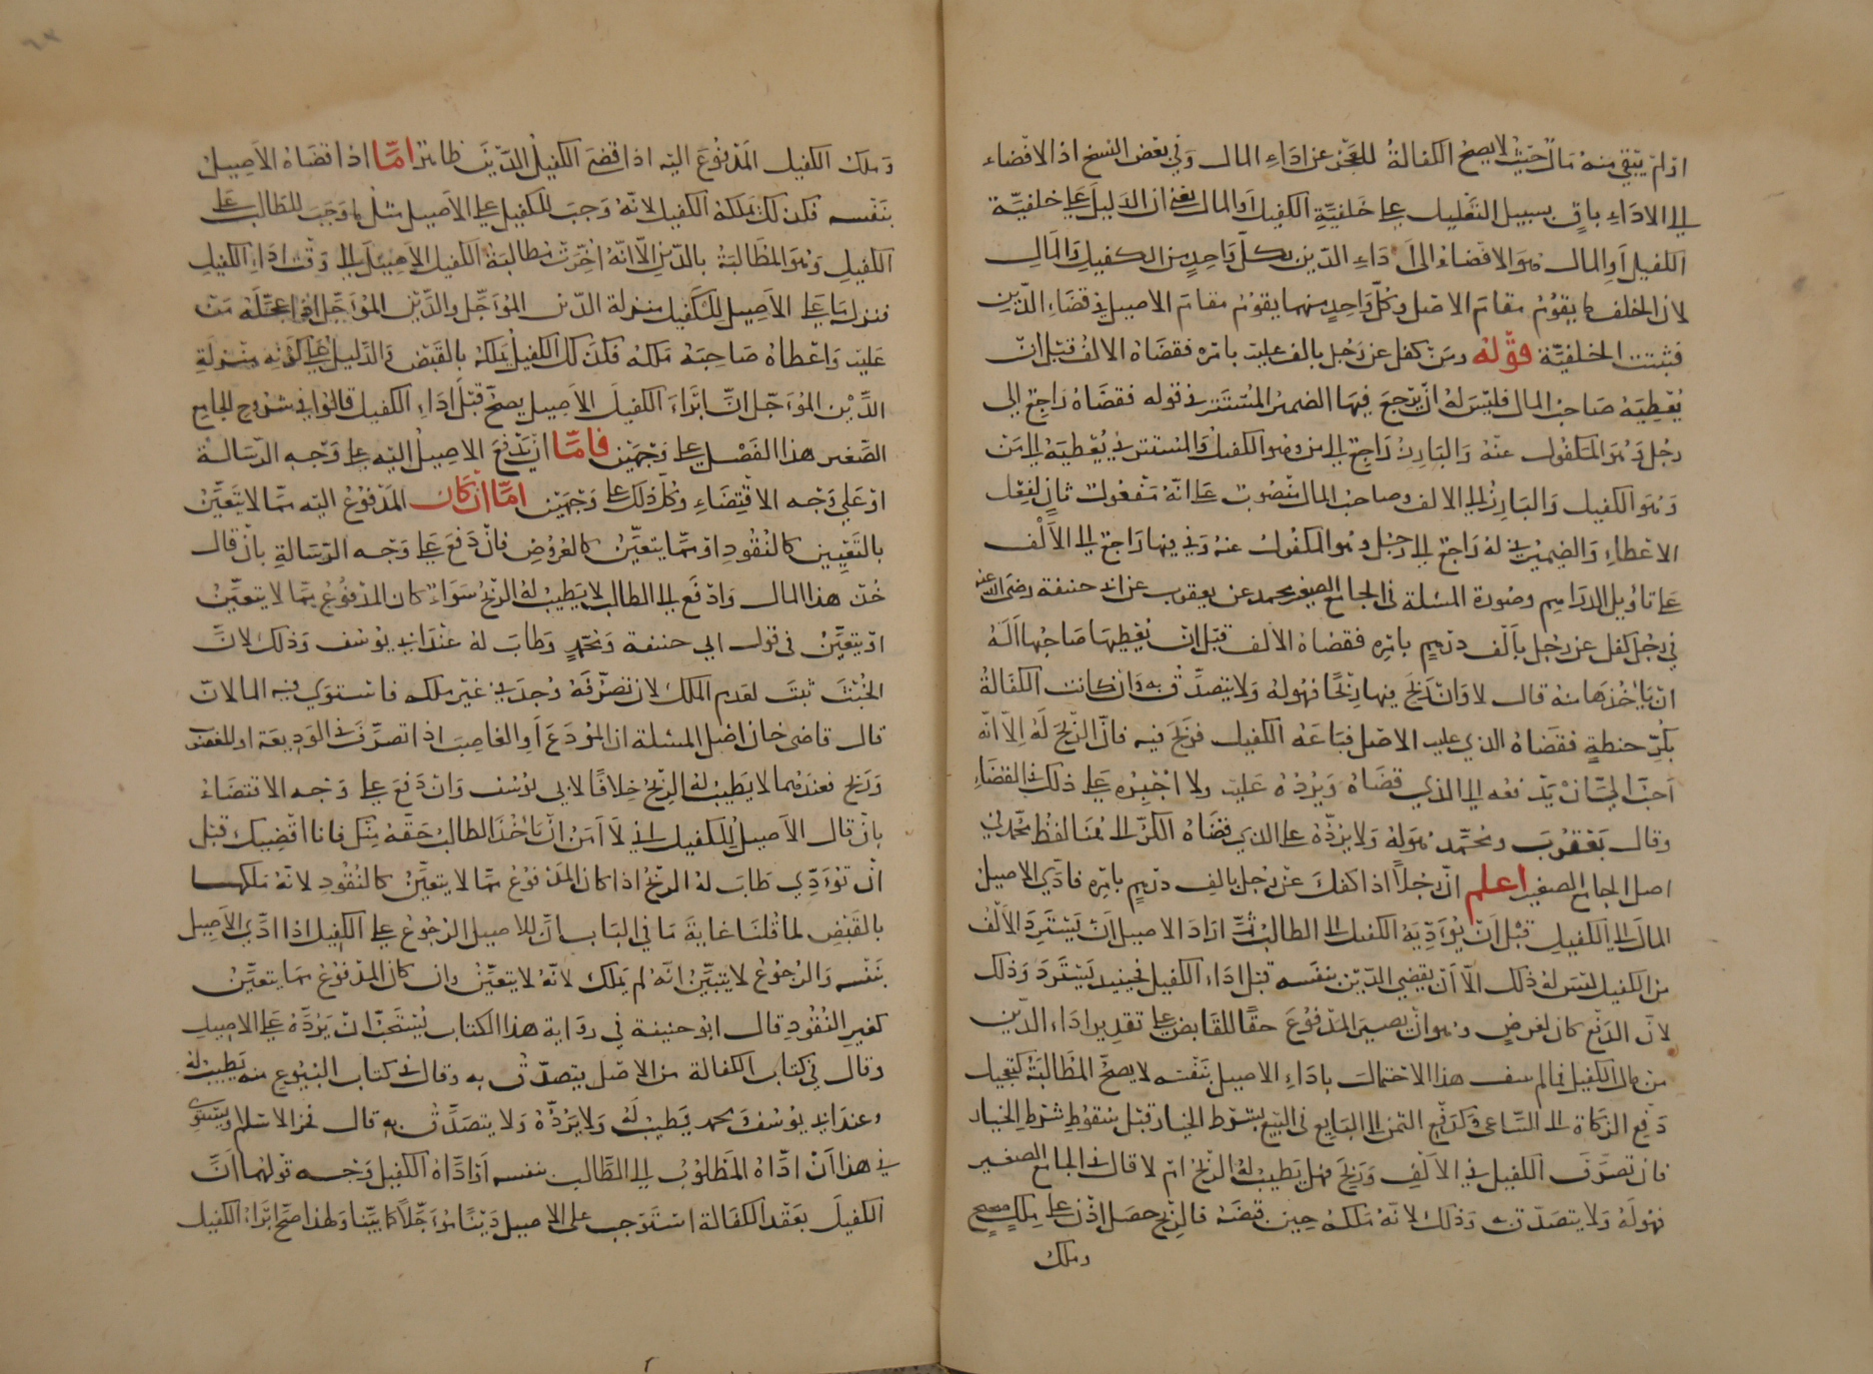 اذ لم يبق منه مال حيث لا يصح الكفالة للعجز عن اداء المال وفي بعض النسخ اذ الافضاء
الى الاداء باق بسبيل التعليل على خلفية الكفيل او المال يعني ان الدليل على خلفية
الكفيل او المال هو الافضاء الى اداء الدين بكل واحد من الكفيل والمال
لان الخلف ما يقوم مقام الاصل وكل واحد منهما يقوم مقام الاصيل في قضاء الدين
فثبتت الخلفية قوله ومن كفل عن رجل بالف عليه بامره فقضاه الالف قبل ان
يعطيه صاحب المال فليس له ان يرجع فيها الضمير المستتر في قوله فقضاه راجع الى
رجل وهو المكفول عنه والبارز راجع الى من وهو الكفيل والمستتر في يعطيه الى من
وهو الكفيل والبارز الى الالف وصاحب المال منصوب على انه مفعول ثان لفعل
الاعطاء والضمير في له راجع الى رجل وهو المكفول عنه وفي فيها راجع الى الألف
على تاويل الدراهم وصورة المسئلة في الجامع الصغير محمد عن يعقوب عن ابي حنيفة رضي الله عنه
في رجل كفل عن رجل بألف درهم بامره فقضاه الالف قبل ان يعطيها صاحبها أله
ان يأخذها منه قال لا وان ربح فيها ربحا فهو له ولا يتصدق به وان كانت الكفالة
بكر حنطة فقضاه الذي عليه الاصل فباعه الكفيل فربح فيه فان الربح له الا انه
احب الي ان يدفعه الى الذي قضاه ويرده عليه ولا اجبره على ذلك في القضاء
وقال يعقوب ومحمد هو له ولا يرده على الذي قضاه الكر الى هنا لفظ محمد في
اصل الجامع الصغير اعلم ان رجلا اذا كفل عن رجل بالف درهم بامره فادى الاصيل
المال الى الكفيل قبل ان يؤديه الكفيل الى الطالب ثم اراد الاصيل ان يسترد الألف
من الكفيل ليس له ذلك الا ان يقضي الدين بنفسه قبل اداء الكفيل فحينئذ يسترد وذلك
لان الدفع كان لغرض وهو ان يصير المدفوع حقا للقابض على تقدير اداء الدين
من مال الكفيل فما لم ينتف هذا الاحتمال باداء الاصيل بنفسه لا يصح المطالبة كتعجيل
دفع الزكاة الى الساعي وكدفع الثمن الى البايع في البيع بشرط الخيار قبل سقوط شرط الخيار
فان تصرف الكفيل في الألف وربح فهل يطيب له الربح ام لا قال في الجامع الصغير
فهو له ولا يتصدق به وذلك لانه ملكه حين قبضه فالربح حصل اذن على ملك صحيح
وملك
وملك الكفيل المدفوع اليه اذا قضى الكفيل الدين ظاهر اما اذا قضاه الاصيل
بنفسه فكذلك يملكه الكفيل لانه وجب للكفيل على الاصيل مثل ما وجب للطالب على
الكفيل وهو المطالبة بالدين الا انه اخرت مطالبة الكفيل الاصيل الى وقت اداء الكفيل
فنزل ما على الاصيل للكفيل منزلة الدين المؤجل والدين المؤجل اذا عجله من
عليه واعطاه صاحبه ملكه فكذلك الكفيل يملكه بالقبض والدليل على كونه بمنزلة
الدين المؤجل ان ابراء الكفيل الاصيل يصح قبل اداء الكفيل قالوا في شروح الجامع
الصغير هذا الفصل على وجهين فاما ان يدفع الاصيل اليه على وجه الرسالة
او على وجه الاقتضاء وكل ذلك على وجهين اما ان كان المدفوع اليه مما لا يتعين
بالتعيين كالنقود او مما يتعين كالعروض فان دفع على وجه الرسالة بان قال
خذ هذا المال وادفع الى الطالب لا يطيب له الربح سواء كان المدفوع مما لا يتعين
او يتعين في قول ابي حنيفة ومحمد وطاب له عند ابي يوسف وذلك لان
الخبث ثبت لعدم الملك لان تصرفه وجد في غير ملكه فاستوى فيه المالان
قال قاضي خان اصل المسئلة ان المودع او الغاصب اذا تصرف في الوديعة او المغصوب
وربح فعندهما لا يطيب له الربح خلافا لابي يوسف وان دفع على وجه الاقتضاء
بان قال الاصيل للكفيل اني لا آمن ان يأخذ الطالب حقه منك فانا اقضيك قبل
ان تؤدي طاب له الربح اذا كان المدفوع مما لا يتعين كالنقود لانه ملكها
بالقبض لما قلنا غاية ما في الباب ان للاصيل الرجوع على الكفيل اذا ادى الاصيل
بنفسه والرجوع لا يتبين انه لم يملك لانه لا يتعين وان كان المدفوع مما يتعين
كغير النقود قال ابو حنيفة في رواية هذا الكتاب يستحب ان يرده على الاصيل
وقال في كتاب الكفالة من الاصل يتصدق به وقال في كتاب البيوع منه يطيب له
وعند ابي يوسف ومحمد يطيب له ولا يرده ولا يتصدق به قال فخر الاسلام ويستوي
في هذا ان اداه المطلوب الى الطالب بنفسه او اداه الكفيل وجه قولهما ان
الكفيل بعقد الكفالة استوجب على الاصيل دينا مؤجلا كما بينا ولهذا صح ابراء الكفيل